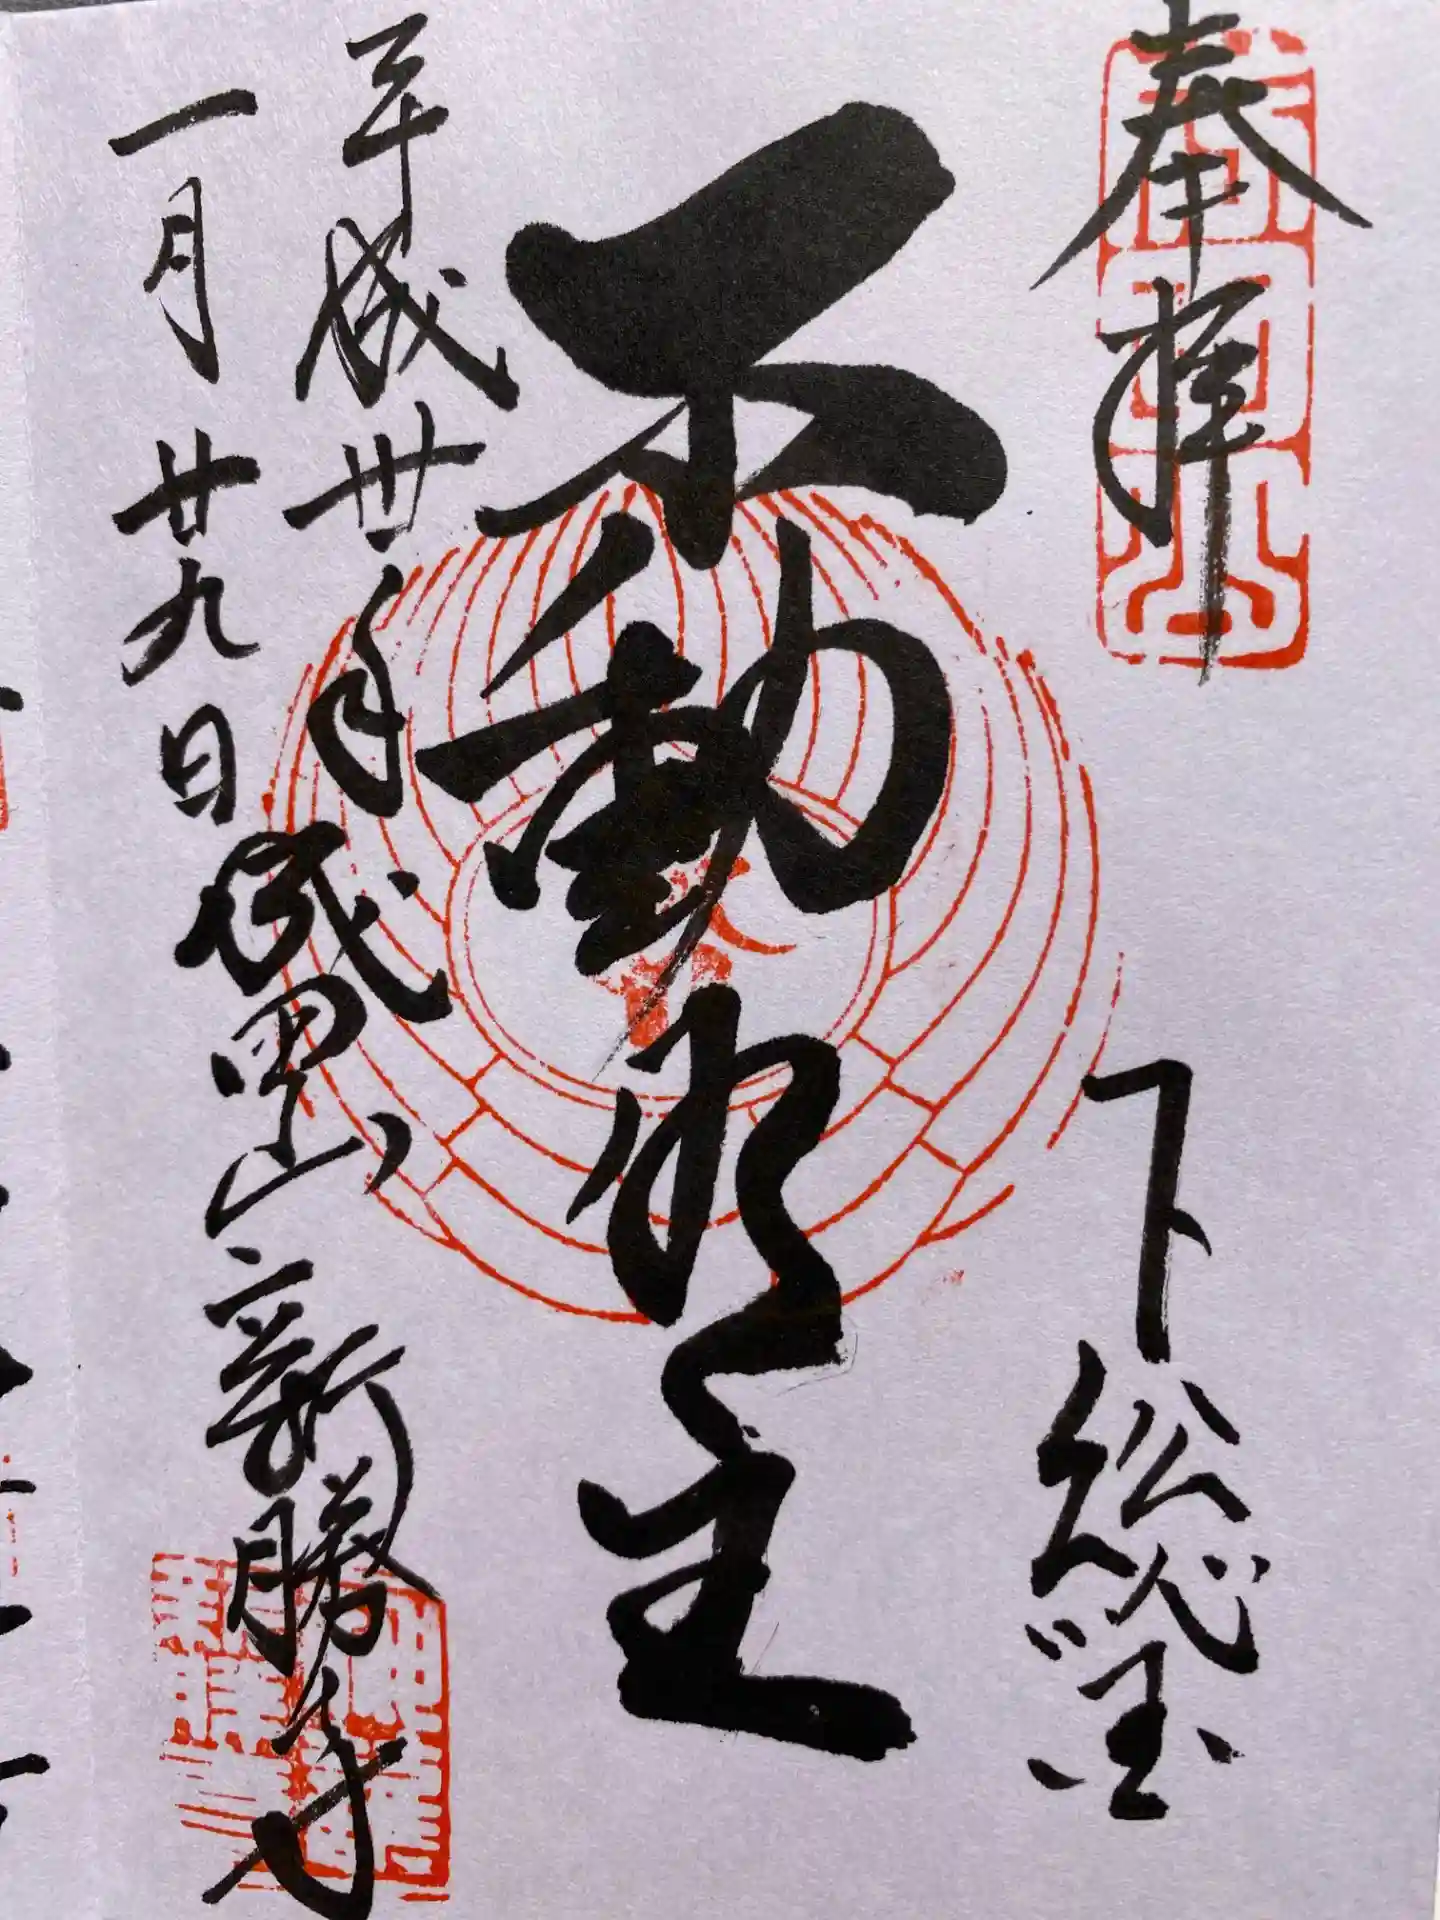 奉拝
下総國
不動明王
平成卅一年
一月廿九日
成田山新勝寺